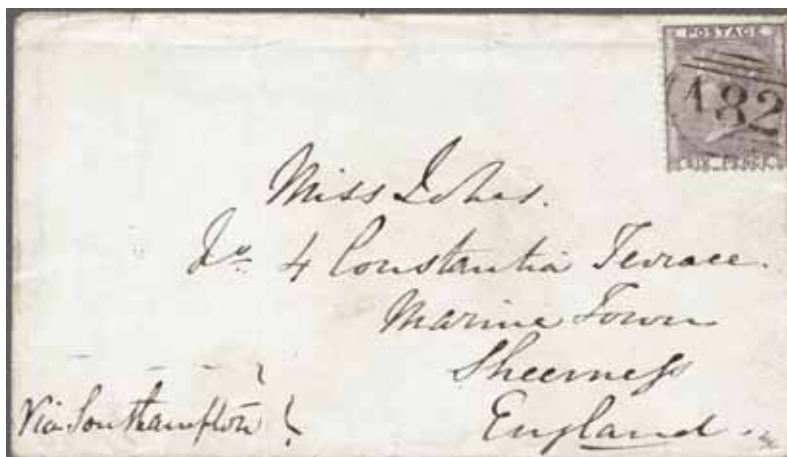 POSTAGE
182
SIX PENCE
Miss
No 4 Constantia Terrace.
Marine Town
Sheerness
England.
Via Southampton